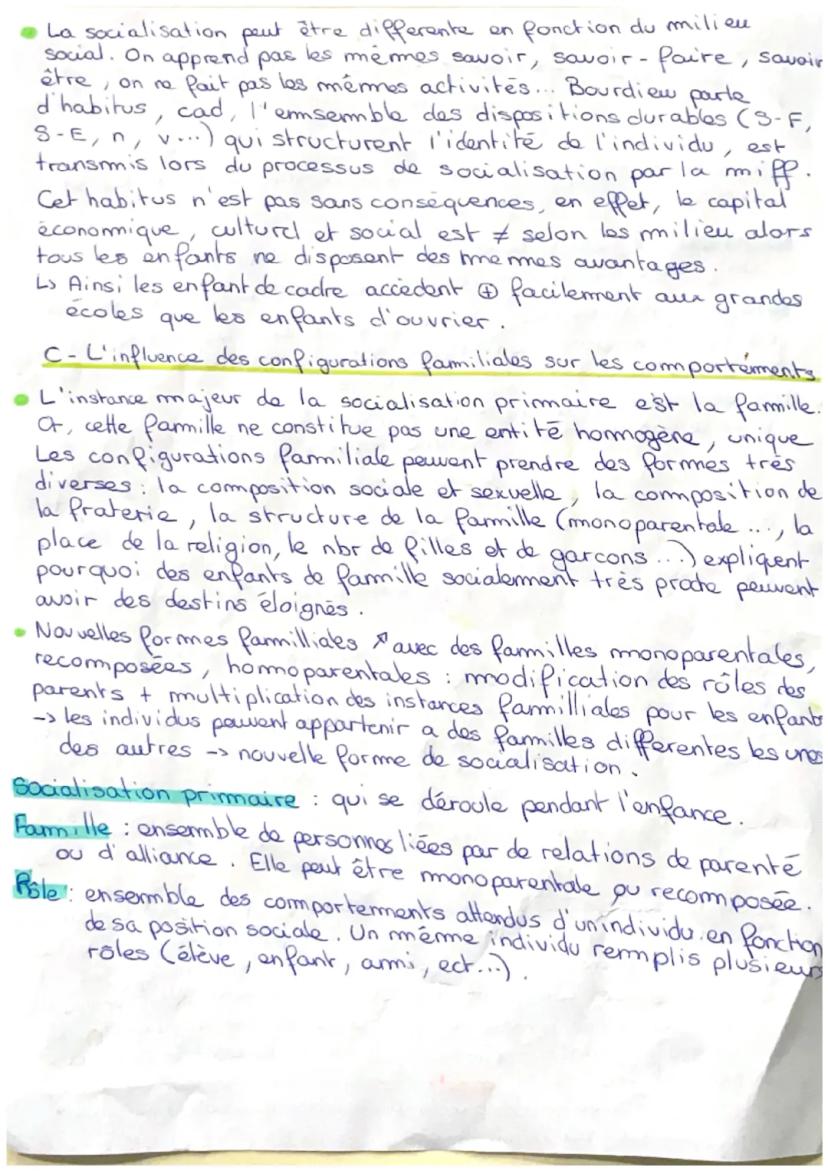 La socialisation peut être differente en fonction du milieu
social. On apprend pas les mêmes savoir, savoir-faire, savoir
être, on ne fait pas les mêmes activités... Bourdieu parle
d'habitus, cad, l'ensemble des dispositions durables (S-F,
S-E, n, v...) qui structurent l'identité de l'individu, est
transmis lors du processus de socialisation par la miff.
Cet habitus n'est pas sans conséquences, en effet, le capital
économique, culturel et social est ≠ selon les milieu alors
tous les enfants ne disposent des mêmes avantages.
↳ Ainsi les enfant de cadre accèdent ⊕ facilement aux grandes
écoles que les enfants d'ouvrier.
C - L'influence des configurations familiales sur les comportements
L'instance majeur de la socialisation primaire est la famille.
Or, cette famille ne constitue pas une entité homogène, unique
Les configurations familiale peuvent prendre des formes très
diverses : la composition sociale et sexuelle, la composition de
la fraterie, la structure de la famille (monoparentale..., la
place de la religion, le nbr de filles et de garcons...) expliquent
pourquoi des enfants de famille socialement très proche peuvent
avoir des destins éloignés.
Nouvelles formes familliales ↗ avec des familles monoparentales,
recomposées, homoparentales : modification des rôles des
parents + multiplication des instances familliales pour les enfants
-> les individus peuvent appartenir a des familles differentes les unes
des autres -> nouvelle forme de socialisation.
Socialisation primaire : qui se déroule pendant l'enfance.
Famille : ensemble de personnes liées par de relations de parenté
ou d'alliance. Elle peut être monoparentale ou recomposée.
Rôle : ensemble des comportements attendus d'un individu en fonction
de sa position sociale. Un même individu remplis plusieurs
rôles (élève, enfant, ami, ect...).